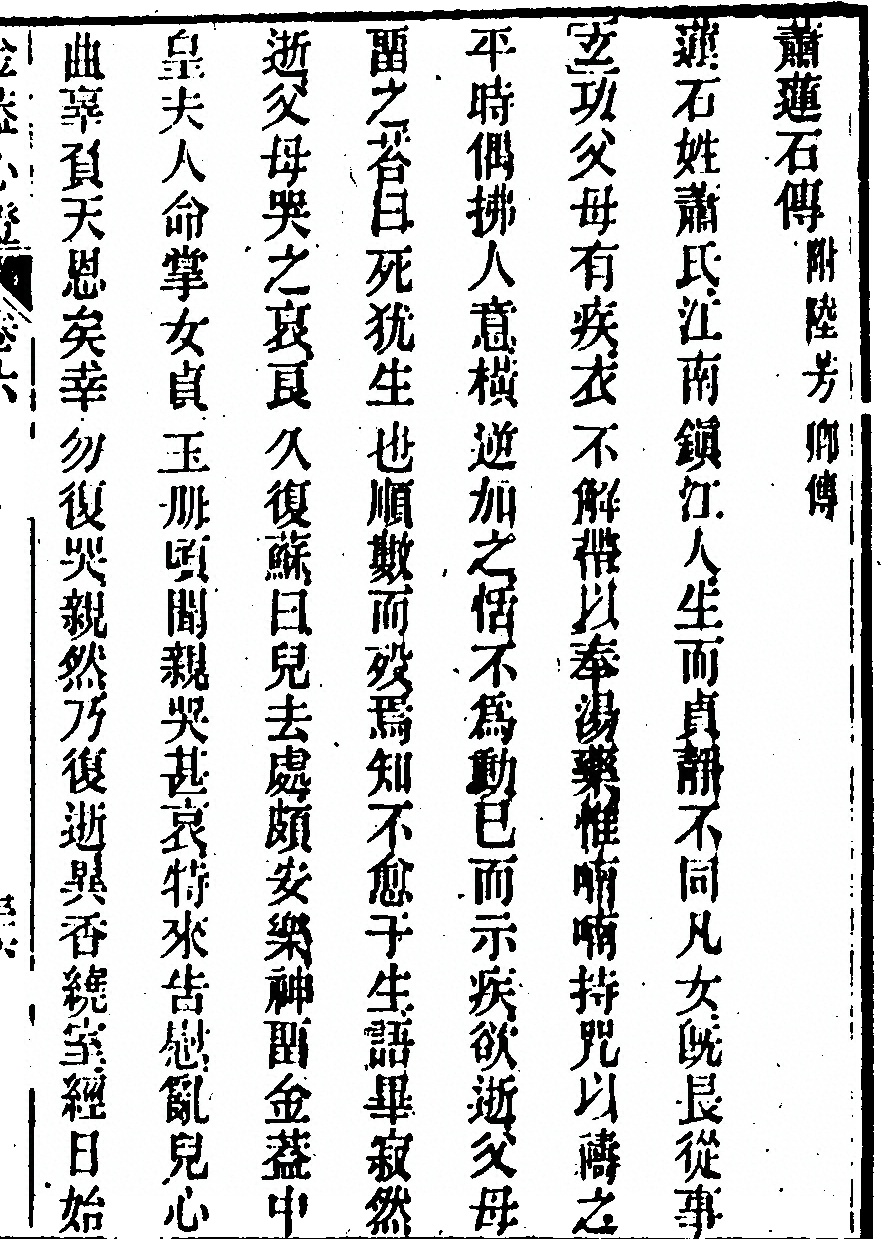 蕭蓮石傳附陸芳卿傳
蓮石姓蕭氏江南鎭江人生而貞靜不同凡女旣長從事
玄功父母有疾衣不解帶以奉湯藥惟喃喃持咒以禱之
平時偶拂人意橫逆加之恬不為動已而示疾欲逝父母
畱之荅曰死犹生也順數而歿焉知不愈于生語畢寂然
逝父母哭之哀良久復蘇曰兒去處頗安樂神畱金葢中
皇夫人命掌女貞玉册頃聞親哭甚哀特來告慰亂兒心
曲辜負天恩矣幸勿復哭親然乃復逝異香繞室經日始
金葢心燈 卷六